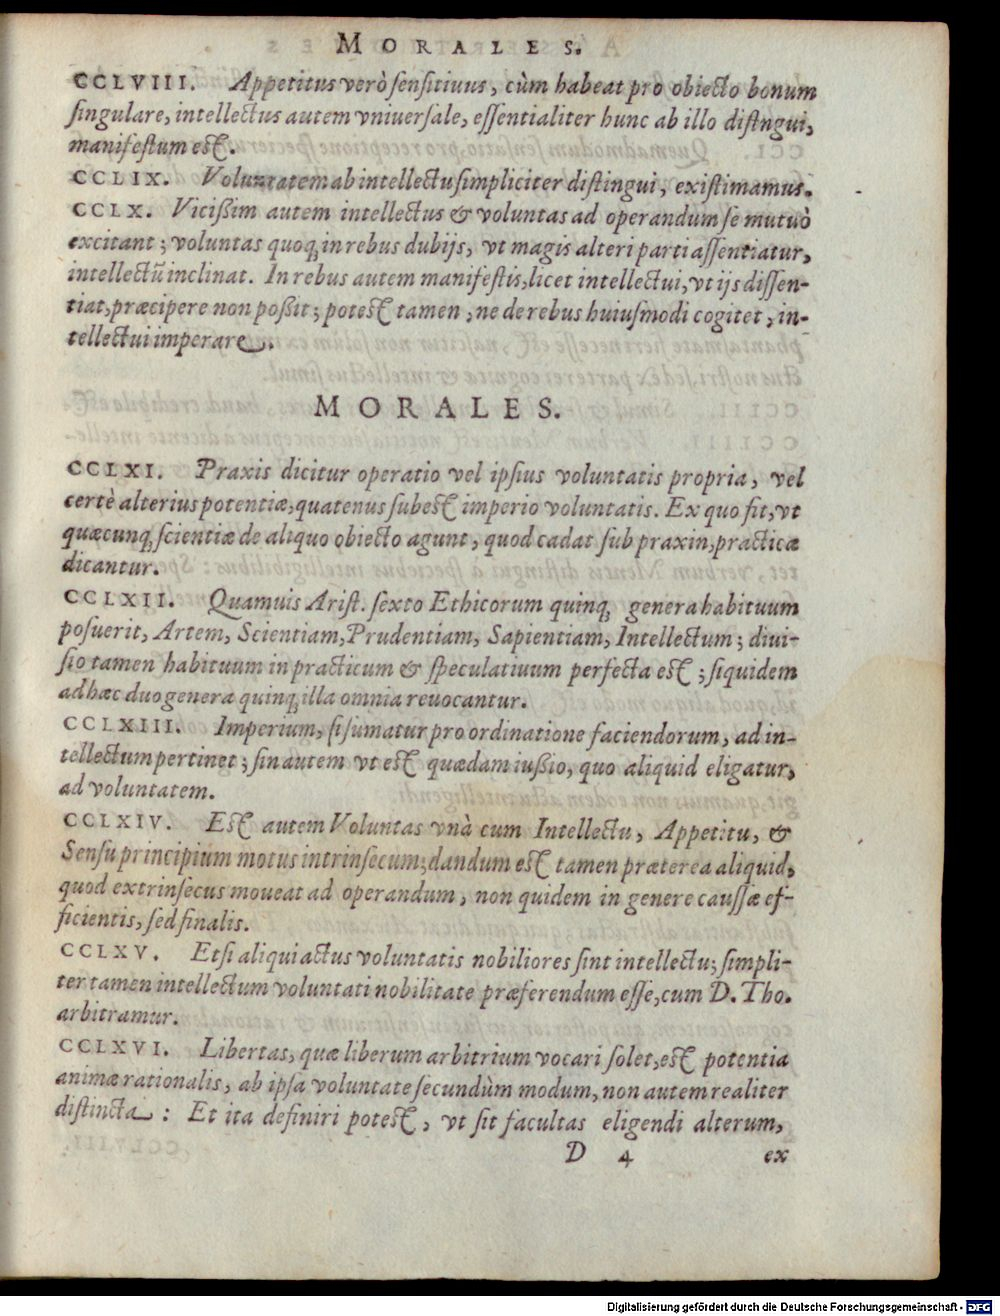 MORALES.
CCLVIII. Appetitus verò sensitiuus, cùm habeat pro obiecto bonum
singulare, intellectus autem vniuersale, essentialiter hunc ab illo distingui,
manifestum est.
CCLIX. Voluntatem ab intellectu simpliciter distingui, existimamus.
CCLX. Vicißim autem intellectus & voluntas ad operandum se mutuò
excitant; voluntas quoq; in rebus dubijs, vt magis alteri parti assentiatur,
intellectũ inclinat. In rebus autem manifestis, licet intellectui, vt ijs dissen-
tiat, præcipere non poßit; potest tamen, ne de rebus huiusmodi cogitet, in-
tellectui imperare.
MORALES.
CCLXI. Praxis dicitur operatio vel ipsius voluntatis propria, vel
certè alterius potentiæ, quatenus subest imperio voluntatis. Ex quo fit, vt
quæcunq; scientiæ de aliquo obiecto agunt, quod cadat sub praxin, practicæ
dicantur.
CCLXII. Quamuis Arist. sexto Ethicorum quinq; genera habituum
posuerit, Artem, Scientiam, Prudentiam, Sapientiam, Intellectum; diui-
sio tamen habituum in practicum & speculatiuum perfecta est; siquidem
ad hæc duo genera quinq; illa omnia reuocantur.
CCLXIII. Imperium, si sumatur pro ordinatione faciendorum, ad in-
tellectum pertinet; sin autem vt est quædam iußio, quo aliquid eligatur,
ad voluntatem.
CCLXIV. Est autem Voluntas vnà cum Intellectu, Appetitu, &
Sensu principium motus intrinsecum; dandum est tamen præterea aliquid,
quod extrinsecus moueat ad operandum, non quidem in genere caussæ ef-
ficientis, sed finalis.
CCLXV. Etsi aliqui actus voluntatis nobiliores sint intellectu; simpli-
ter tamen intellectum voluntati nobilitate præferendum esse, cum D. Tho.
arbitramur.
CCLXVI. Libertas, quæ liberum arbitrium vocari solet, est potentia
animæ rationalis, ab ipsa voluntate secundùm modum, non autem realiter
distincta: Et ita definiri potest, vt sit facultas eligendi alterum,
D 4 ex
Digitalisierung gefördert durch die Deutsche Forschungsgemeinschaft - DFG